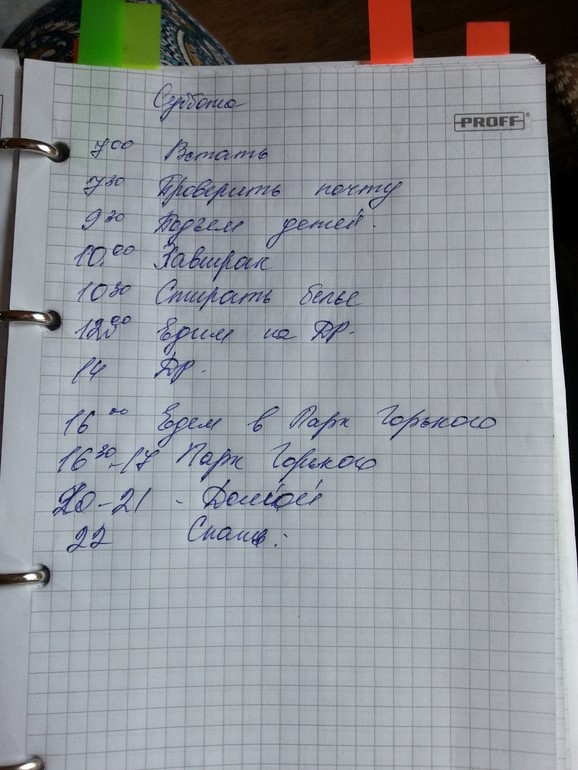 Суббота
PROFF
7 00 Встать
7 30 Проверить почту
9 30 Подъем детей.
10.00 Завтрак
10 30 Стирать белье
12 00 Едим на ДР.
14 ДР.
16 00 Едем в Парк Горького
16 30-17 Парк Горького
20-21 - Домой
22 Спать.